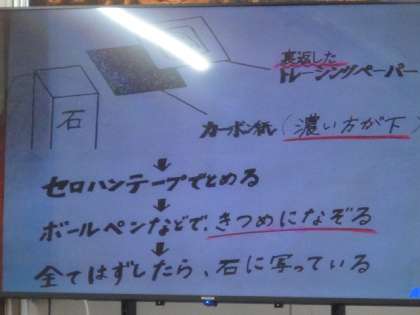 裏返した
トレーシングペーパー
石
カーボン紙（濃い方が下）
セロハンテープでとめる
ボールペンなどで、きつめになぞる
全てはずしたら、石に写っている